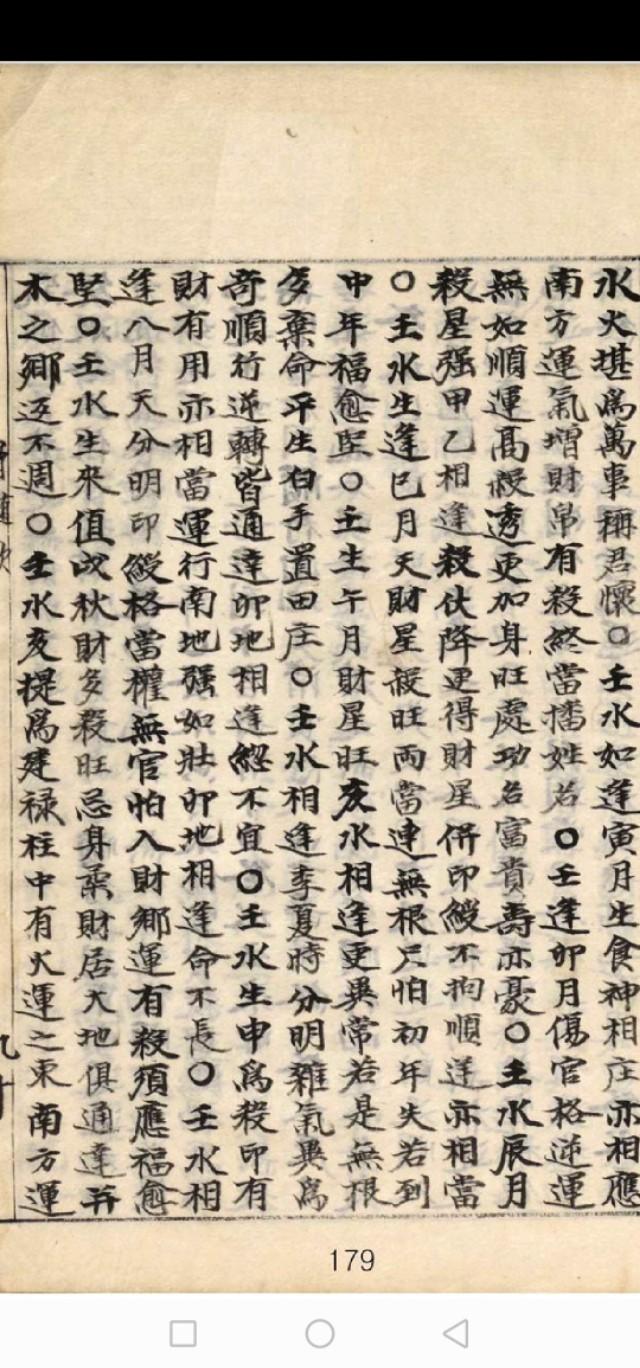 水火堪爲萬事稱君懷○壬水如逢寅月生食神相庄亦相應
南方運氣增財帛有殺終當播姓名○壬逢卯月傷官格逆運
無如順運高殺透更加身旺處功名富貴壽亦豪○壬水辰月
殺星强甲乙相逢殺伏降更得財星併印綬不拘順逆亦相當
○壬水生逢巳月天財星殺旺両當連無根只怕初年失若到
申年福愈堅○壬生午月財星旺亥水相逢更異常若是無根
多棄命平生白手置田庄○壬水相逢季夏時分明雜氣異爲
奇順行逆轉皆通達卯地相逢總不宜○壬水生申爲殺印有
財有用亦相當運行南地强如壯卯地相逢命不長○壬水相
逢八月天分明印綬格當權無官怕入財鄉運有殺須應福愈
堅○壬水生來值戌秋財多殺旺忌身柔財居大地俱通達并
木之鄉逆不週○壬水亥提爲建禄柱中有火運之東南方運
179